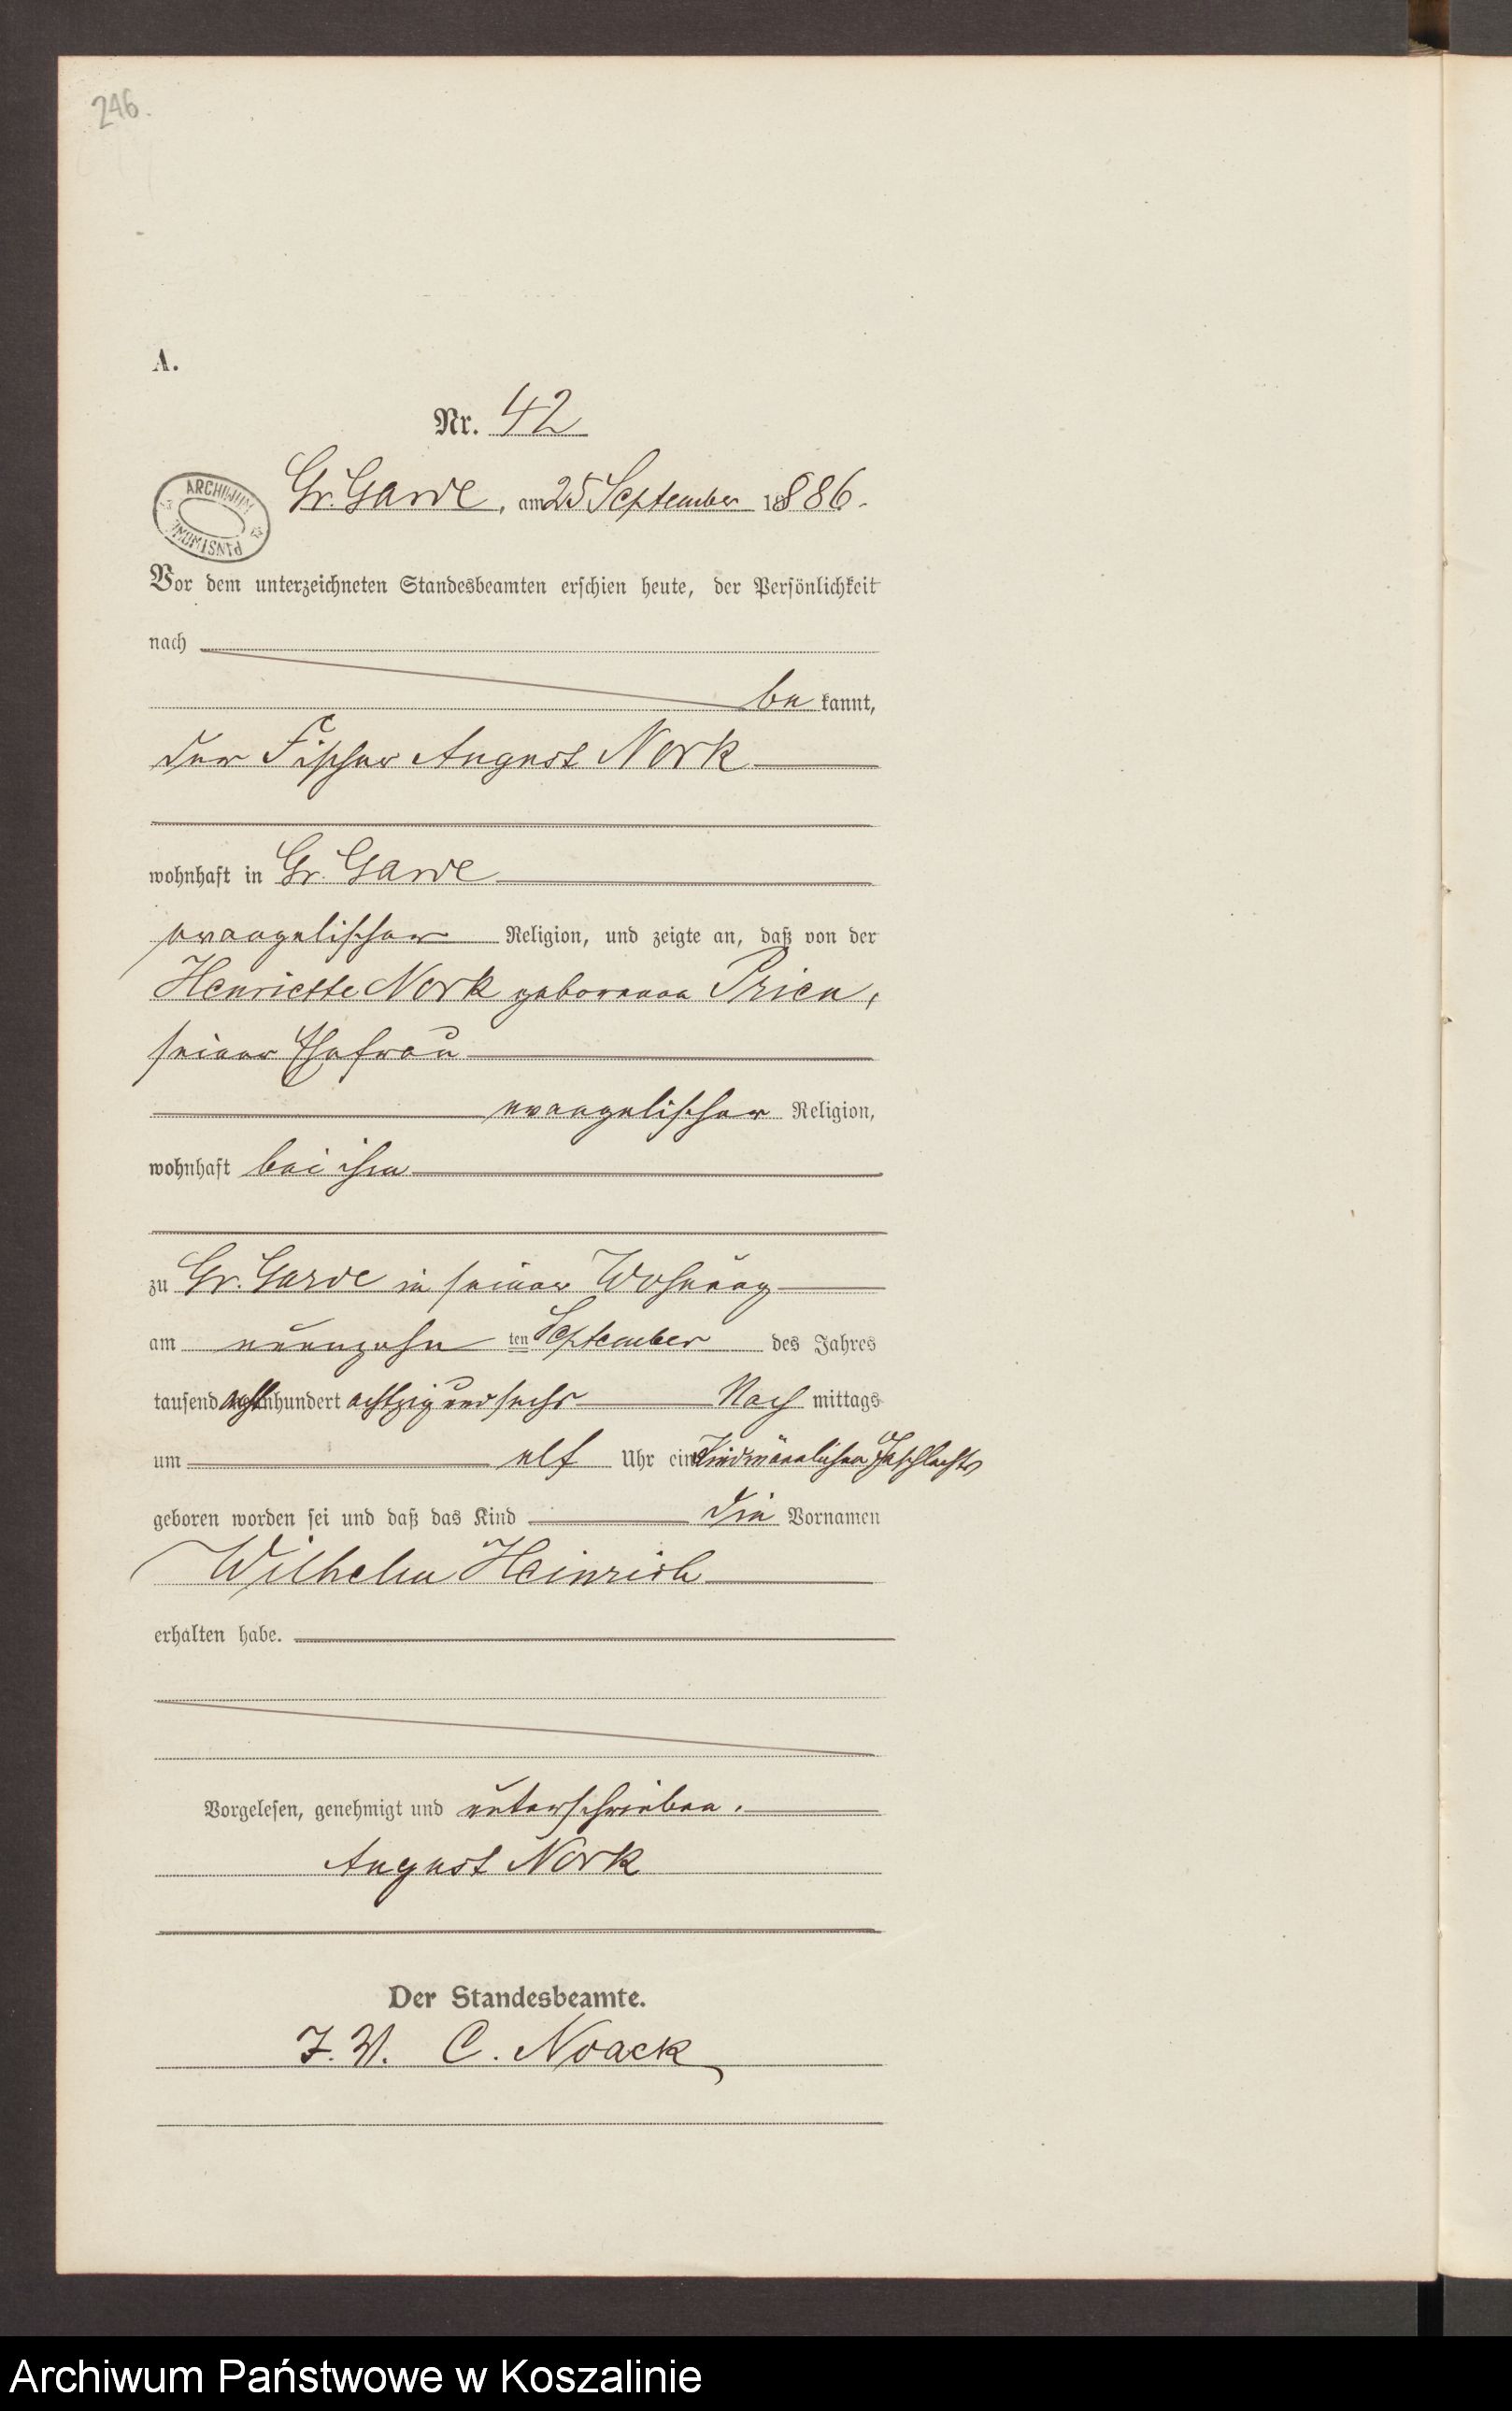 246.
A.
Nr. 42
ARCHIWUM PAŃSTWOWE
Gr. Garde, am 25 September 1886.
Vor dem unterzeichneten Standesbeamten erschien heute, der Persönlichkeit
nach
be kannt,
der Fischer August Nork
wohnhaft in Gr. Garde
evangelischer Religion, und zeigte an, daß von der
Henriette Nork geborenen Prien,
seiner Ehefrau
evangelischer Religion,
wohnhaft bei ihm
zu Gr. Garde in seiner Wohnung
am neunzehn ten September des Jahres
tausend acht hundert achtzig und sechs Nach mittags
um elf Uhr ein Kind männlichen Geschlechts
geboren worden sei und daß das Kind die Vornamen
Wilhelm Heinrich
erhalten habe.
Vorgelesen, genehmigt und unterschrieben.
August Nork
Der Standesbeamte.
J. V. C. Noack
Archiwum Państwowe w Koszalinie